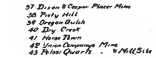 37 Dixon & Cooper Placer Mine
38 Piety Hill
39 Oregon Gulch
40 Dry Creek
41 Horse Town
42 Union Company's Mine
43 Potosi Quartz " & Mill Site